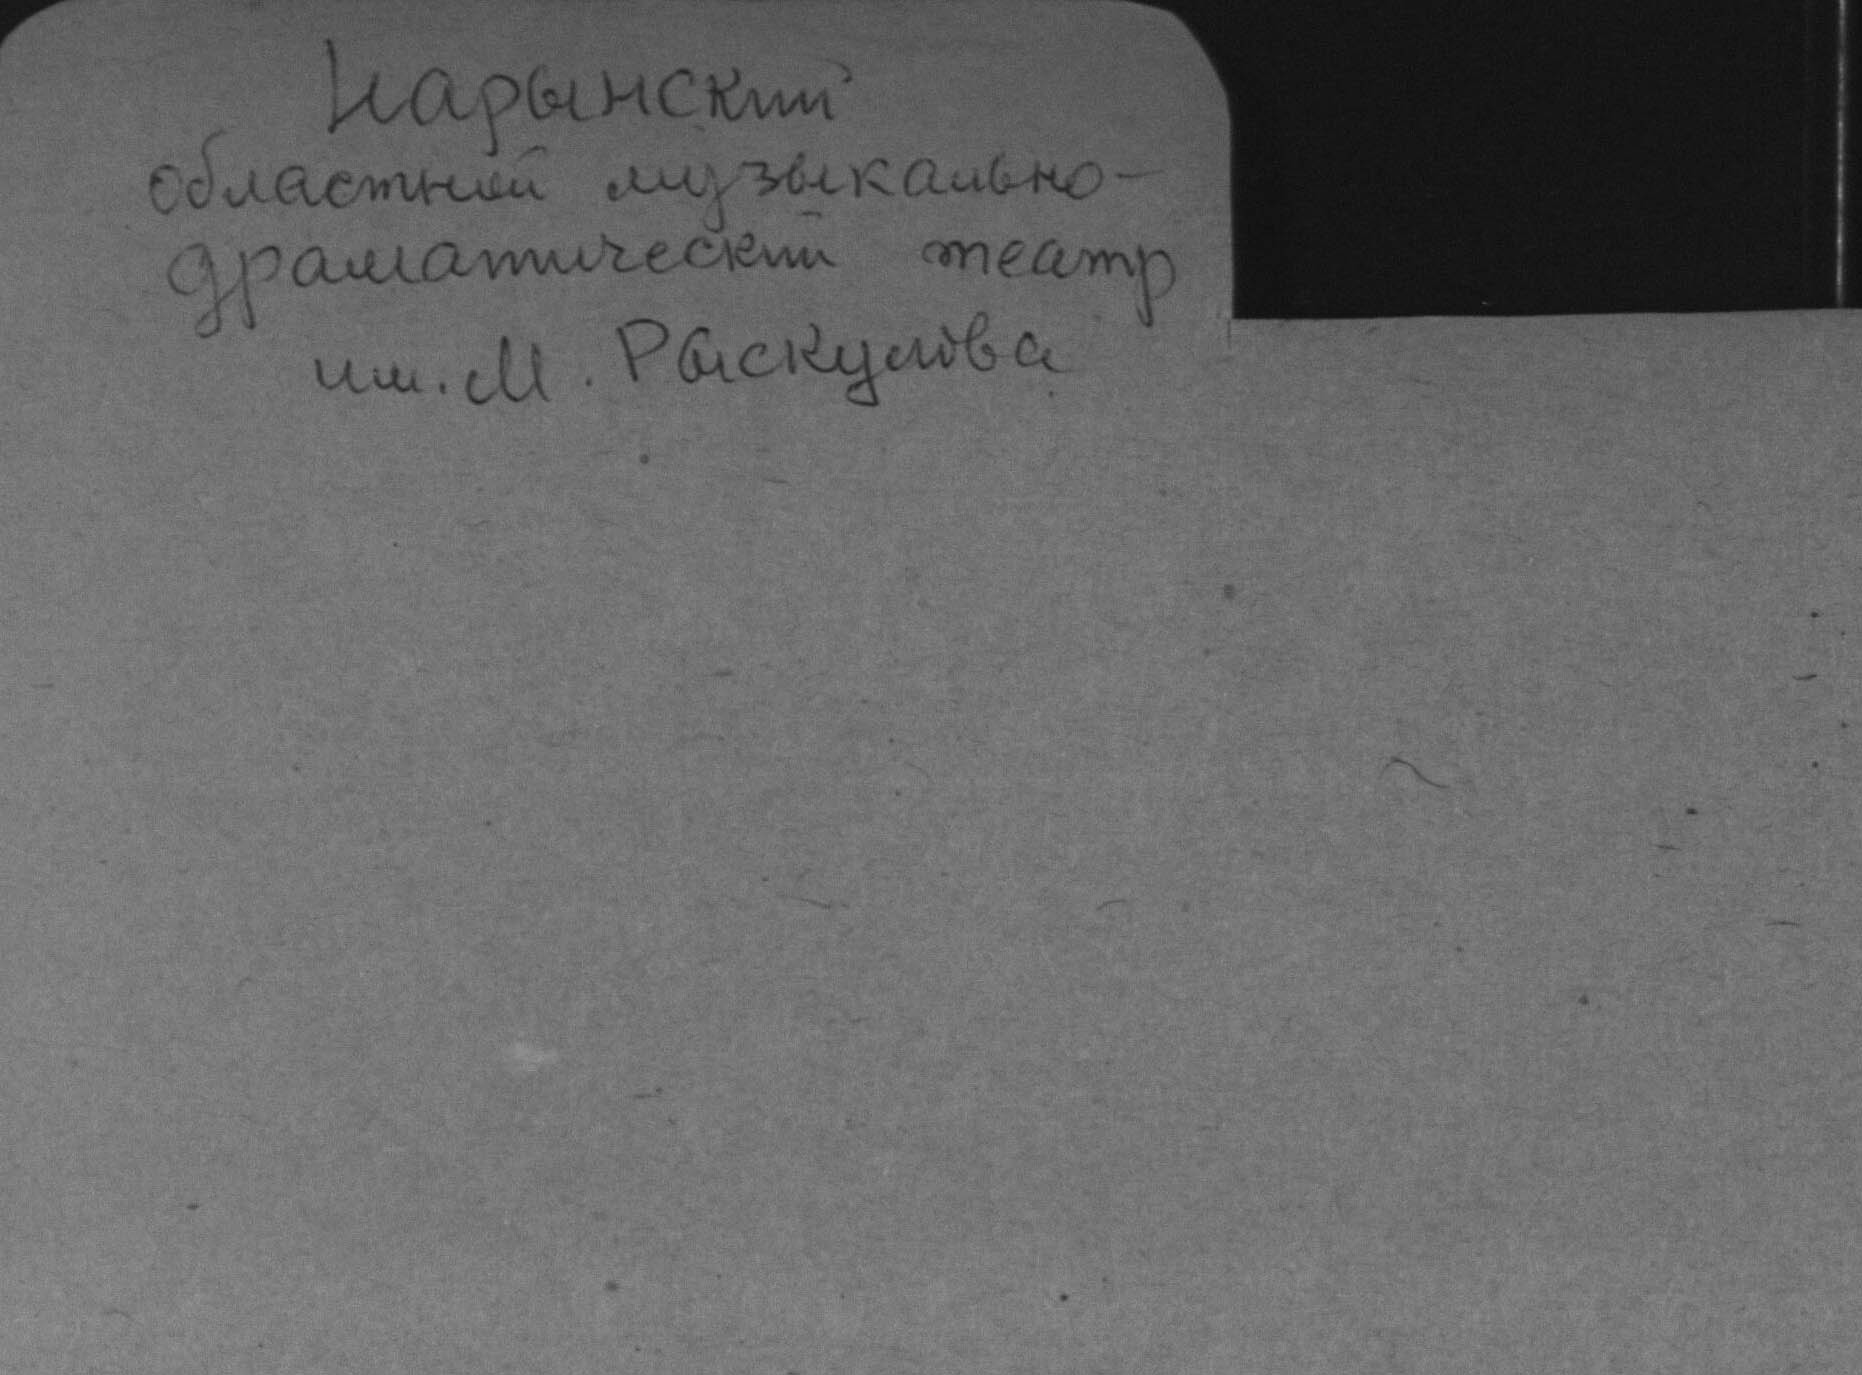 Нарынский
областной музыкально-
драматический театр
им. М. Рыскулова